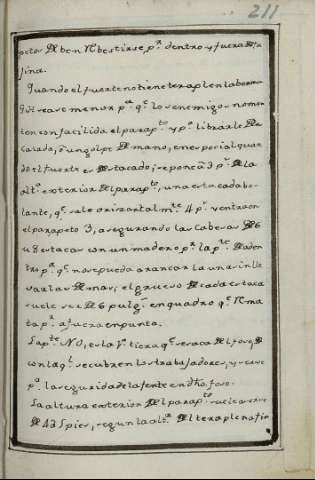 211
petos de ben Rebestirse p.r dentro y fuera de fa
jina.
Quando el fuerte no tiene terraplen la berma
deve ser menor p.a q.e los enemigos no mon
ten con facilida el parap.to y p.a librarle de
calada, o un golpe de mano, en especial quan
do el fuerte es destacado; se pone a 3 p.s de la
alt.a exterior del parap.to, una estacada bo
lante, q.e sale orizontalm.te 4 p.s y entra en
el parapeto 3, asegurando las cabesas de 6
u 8 estacas con un madero p.r la p.te de aden
tro p.a q.e no se pueda arancar la una sin lle
var las demas; el grueso de cada estaca
suele ser de 6 pulg.s en quadro q.e Rema
ta p.r afuera en punta.
La p.te NO, es la t.a tiera q.e se saca del foso, 
con la q.l se cubren los trabajadores, y sirve
p.a la seguridad de la jente en dho foso.
La altura exterior del parap.to suele ser
de 4 a 5 pies, segun la alt.a del terapleno fin